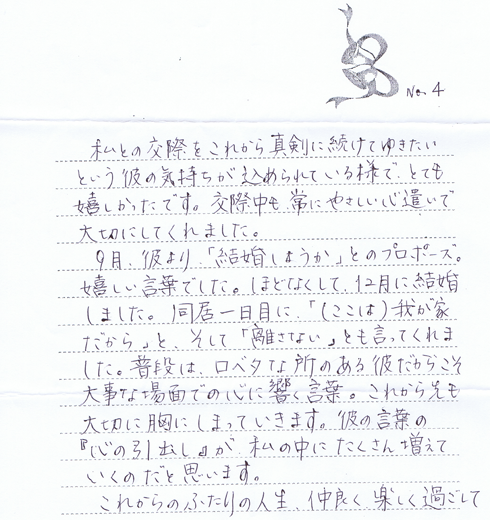 No. 4
私との交際をこれから真剣に続けてゆきたい
という彼の気持ちが込められている様で、とても
嬉しかったです。交際中も常にやさしい心遣いで
大切にしてくれました。
9月、彼より、「結婚しようか」とのプロポーズ。
嬉しい言葉でした。ほどなくして、12月に結婚
しました。同居一日目に、「(ここは)我が家
だから」と、そして「離さない」とも言ってくれま
した。普段は、口ベタな所のある彼だからこそ
大事な場面での心に響く言葉。これから先も
大切に胸にしまっていきます。彼の言葉の
『心の引出し』が、私の中にたくさん増えて
いくのだと思います。
これからのふたりの人生、仲良く楽しく過ごして